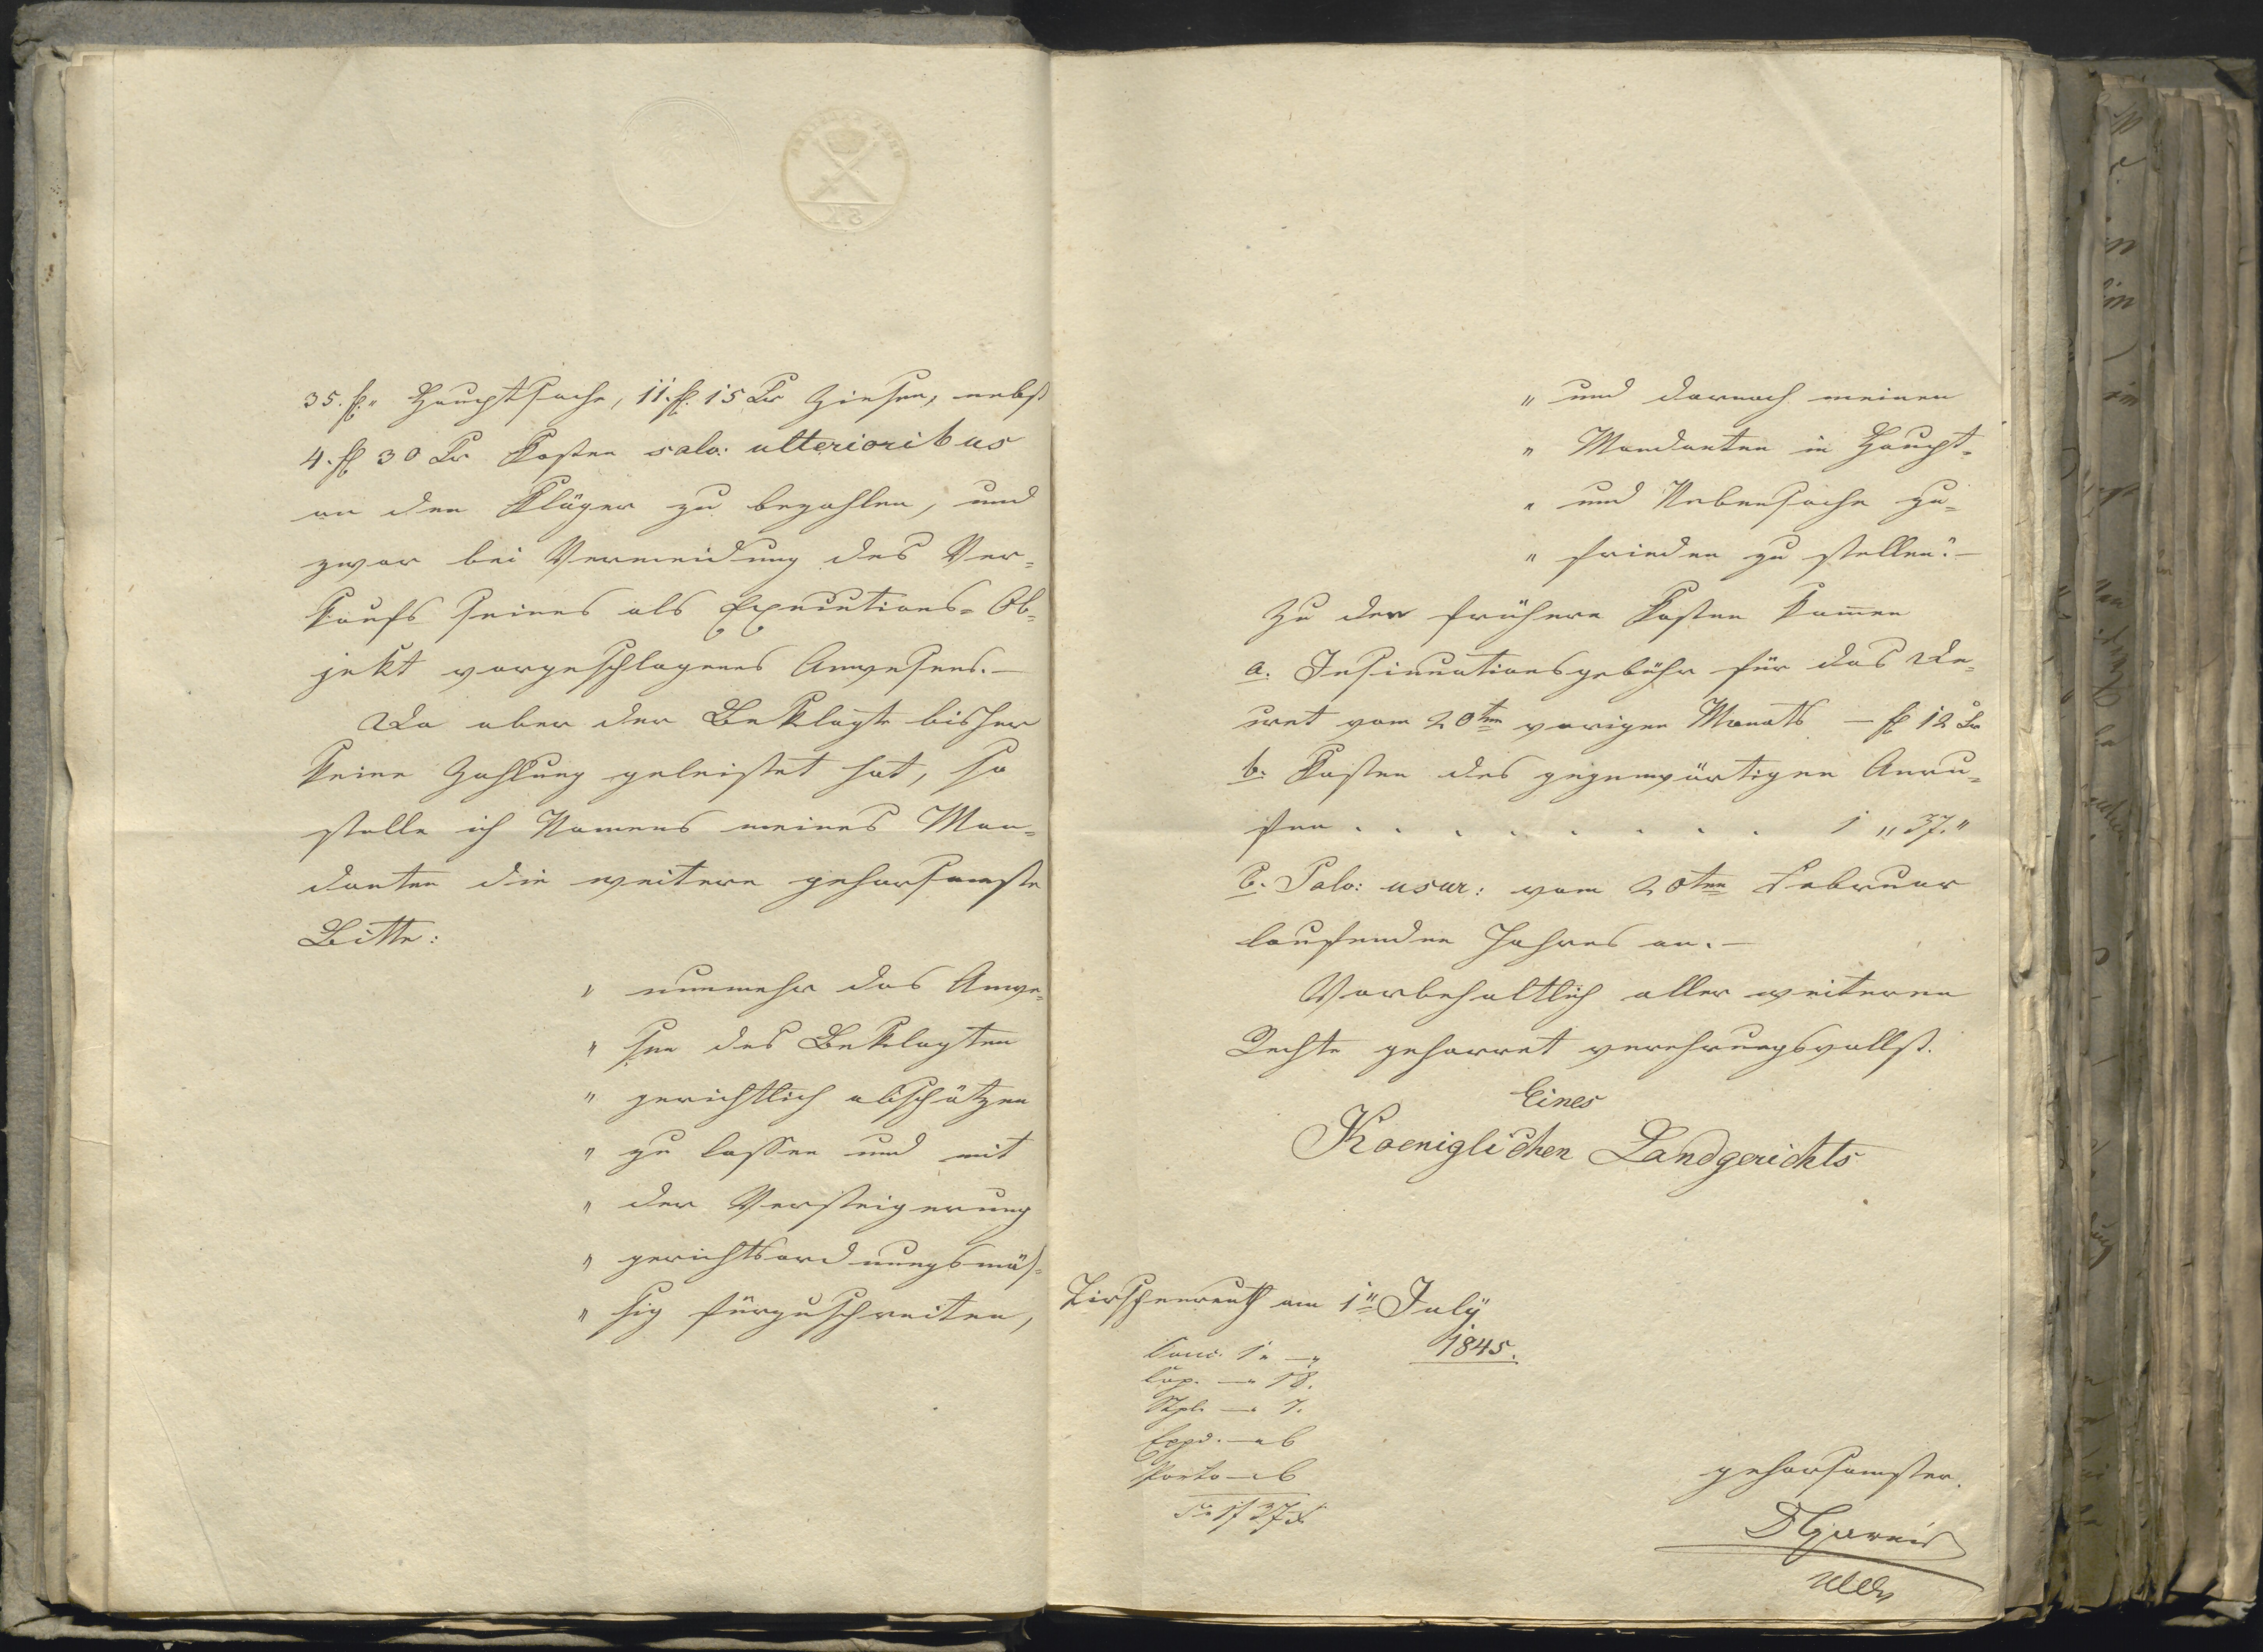 35. fl. Hauptsache, 11. fl. 15 Kr Zinsen, nebst
4. fl 30 Kr Kosten salv: ulterioribus
an den Kläger zu bezahlen, und
zwar bei Vermeidung des Ver-
kaufs seines als Executions-Ob-
jekt vorgeschlagenes Anwesens.—
Da aber der Beklagte bisher
keine Zahlung geleistet hat, so
stelle ich Namens meines Man-
danten die weitere gehorsamste
Bitte:
" nunmehr das Anwe-
" sen des Beklagten
" gerichtlich abschätzen
" zu lassen und mit
" der Versteigerung
" gerichtsordnungsmäs-
" sig fürzuschreiten,
" und darnach meinen
" Mandanten in Haupt-
" und Nebensache zu-
" frieden zu stellen."—
Zu den frühern Kosten kom̅en
a. Insinuationsgebühr für das De-
cret vom 20ten vorigen Monats — fl 12 Kr
b. Kosten des gegenwärtigen Anru-
fen . . . . . . . . 1 " 37. "
c. Salv: usur: vom 20ten Februar
laufenden Jahres an.—
Vorbehaltlich aller weiteren
Rechte geharret verehrungsvollst.
Eines
Koeniglichen Landgerichts
Tirschenreuth am 1ten July
1845.
Conc. 1 " — "
Cop. — " 18.
Stpl. — " 7.
Expd. — " 6
Porto — " 6
Sa 1 f 37 Kr
gehorsamster
Gareis